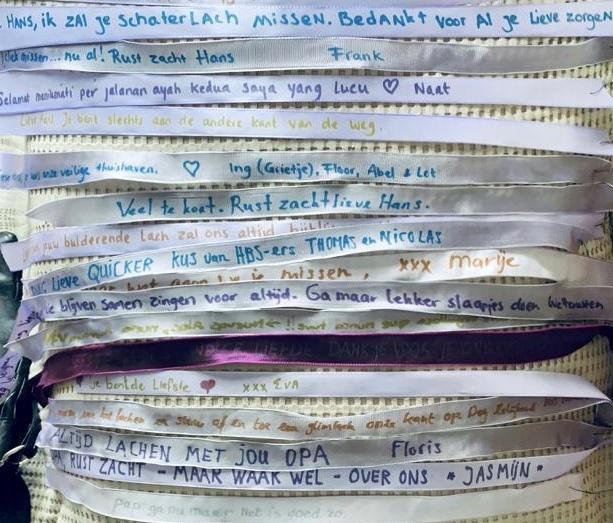 HANS, ik ZAl je SchaterLAch missen. BeDANkt voor Al je Lieve zorgen
missen... nu al! Rust zacht Hans Frank
Selamat menikmati per jalanan ayah kedua saya yang Lucu ♡ Naat
Je bent slechts aan de andere kant van de weg.
onze veilige thuishaven. ♡ Ing (Grietje), Floor, Abel & Let
Veel te kort. Rust zacht lieve Hans.
bulderende Lach zal ons altijd
DAG Lieve QUICKER kus van HBS-ers THOMAS en NICOLAS
missen, xxx marije
we blijven samen zingen voor altijd. Ga maar lekker slaapjes doen
je bent de Liefste ♥ xxx EVA
lachen en af en toe een glimlach onze kant op Dag
ALTIJD LACHEN MET JOU OPA Floris
RUST ZACHT - MAAR WAAK WEL - OVER ONS * JASMIJN *
Pap ga nu maar het is goed zo